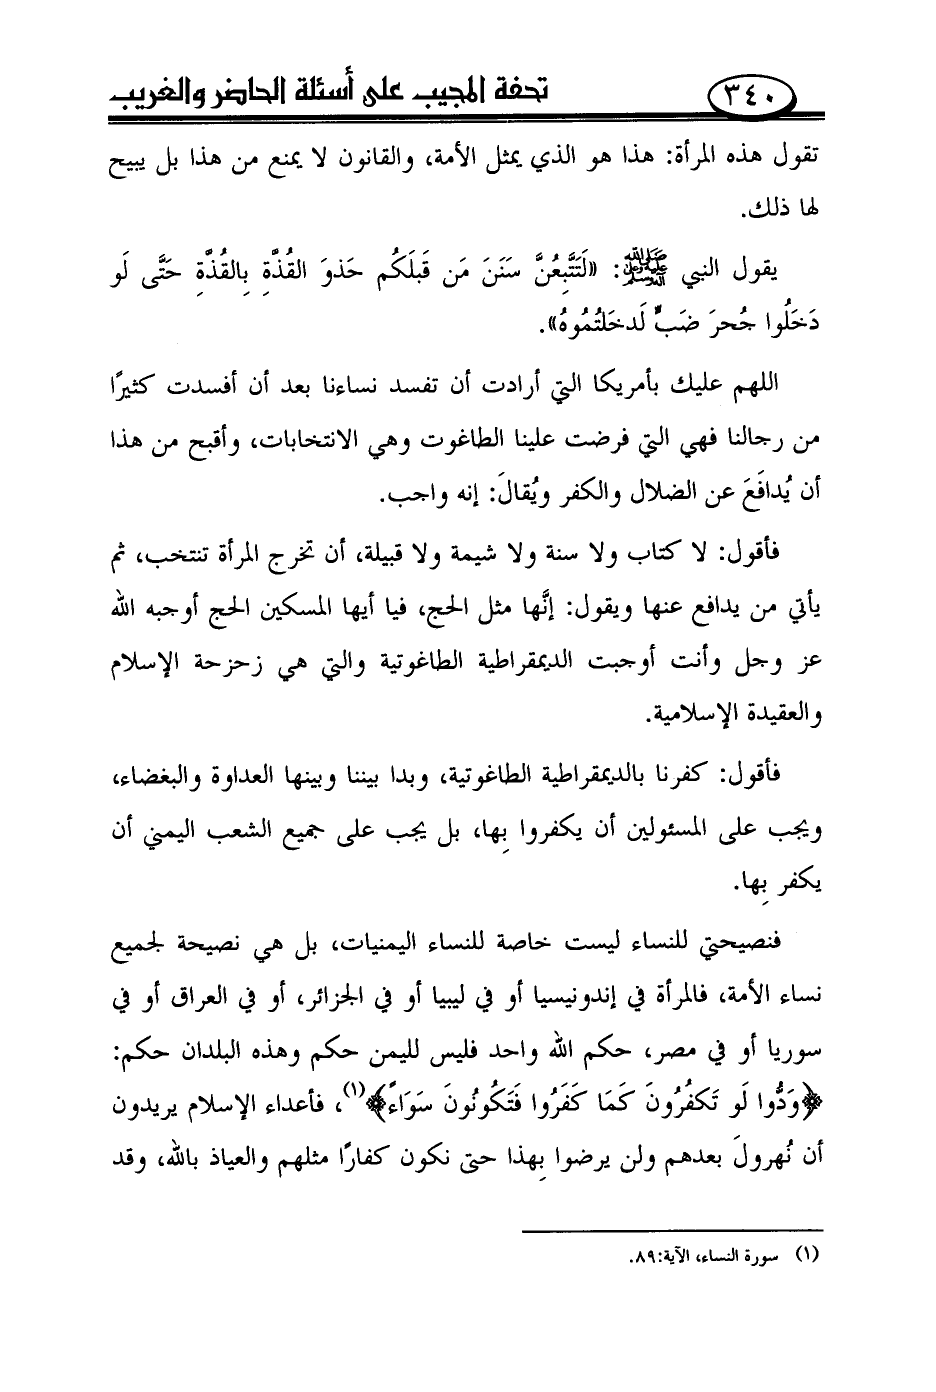 ٣٤٠ تحفة المجيب على أسئلة الحاضر والغريب
تقول هذه المرأة: هذا هو الذي يمثل الأمة، والقانون لا يمنع من هذا بل يبيح
لها ذلك.
يقول النبي ﷺ: «لَتَتَّبِعُنَّ سَنَنَ مَن قَبلَكُم حَذوَ القُذَّةِ بِالقُذَّةِ حَتَّى لَو
دَخَلُوا جُحرَ ضَبٍّ لَدخَلتُمُوهُ».
اللهم عليك بأمريكا التي أرادت أن تفسد نساءنا بعد أن أفسدت كثيرًا
من رجالنا فهي التي فرضت علينا الطاغوت وهي الانتخابات، وأقبح من هذا
أن يُدافَعَ عن الضلال والكفر ويُقالَ: إنه واجب.
فأقول: لا كتاب ولا سنة ولا شيمة ولا قبيلة، أن تخرج المرأة تنتخب، ثم
يأتي من يدافع عنها ويقول: إنَّها مثل الحج، فيا أيها المسكين الحج أوجبه الله
عز وجل وأنت أوجبت الديمقراطية الطاغوتية والتي هي زحزحة الإسلام
والعقيدة الإسلامية.
فأقول: كفرنا بالديمقراطية الطاغوتية، وبدا بيننا وبينها العداوة والبغضاء،
ويجب على المسئولين أن يكفروا بِها، بل يجب على جميع الشعب اليمني أن
يكفر بِها.
فنصيحتي للنساء ليست خاصة للنساء اليمنيات، بل هي نصيحة لجميع
نساء الأمة، فالمرأة في إندونيسيا أو في ليبيا أو في الجزائر، أو في العراق أو في
سوريا أو في مصر، حكم الله واحد فليس لليمن حكم وهذه البلدان حكم:
﴿وَدُّوا لَو تَكفُرُونَ كَمَا كَفَرُوا فَتَكُونُونَ سَوَاءً﴾(١)، فأعداء الإسلام يريدون
أن نُهرولَ بعدهم ولن يرضوا بِهذا حتى نكون كفارًا مثلهم والعياذ بالله، وقد
(١) سورة النساء، الآية:٨٩.